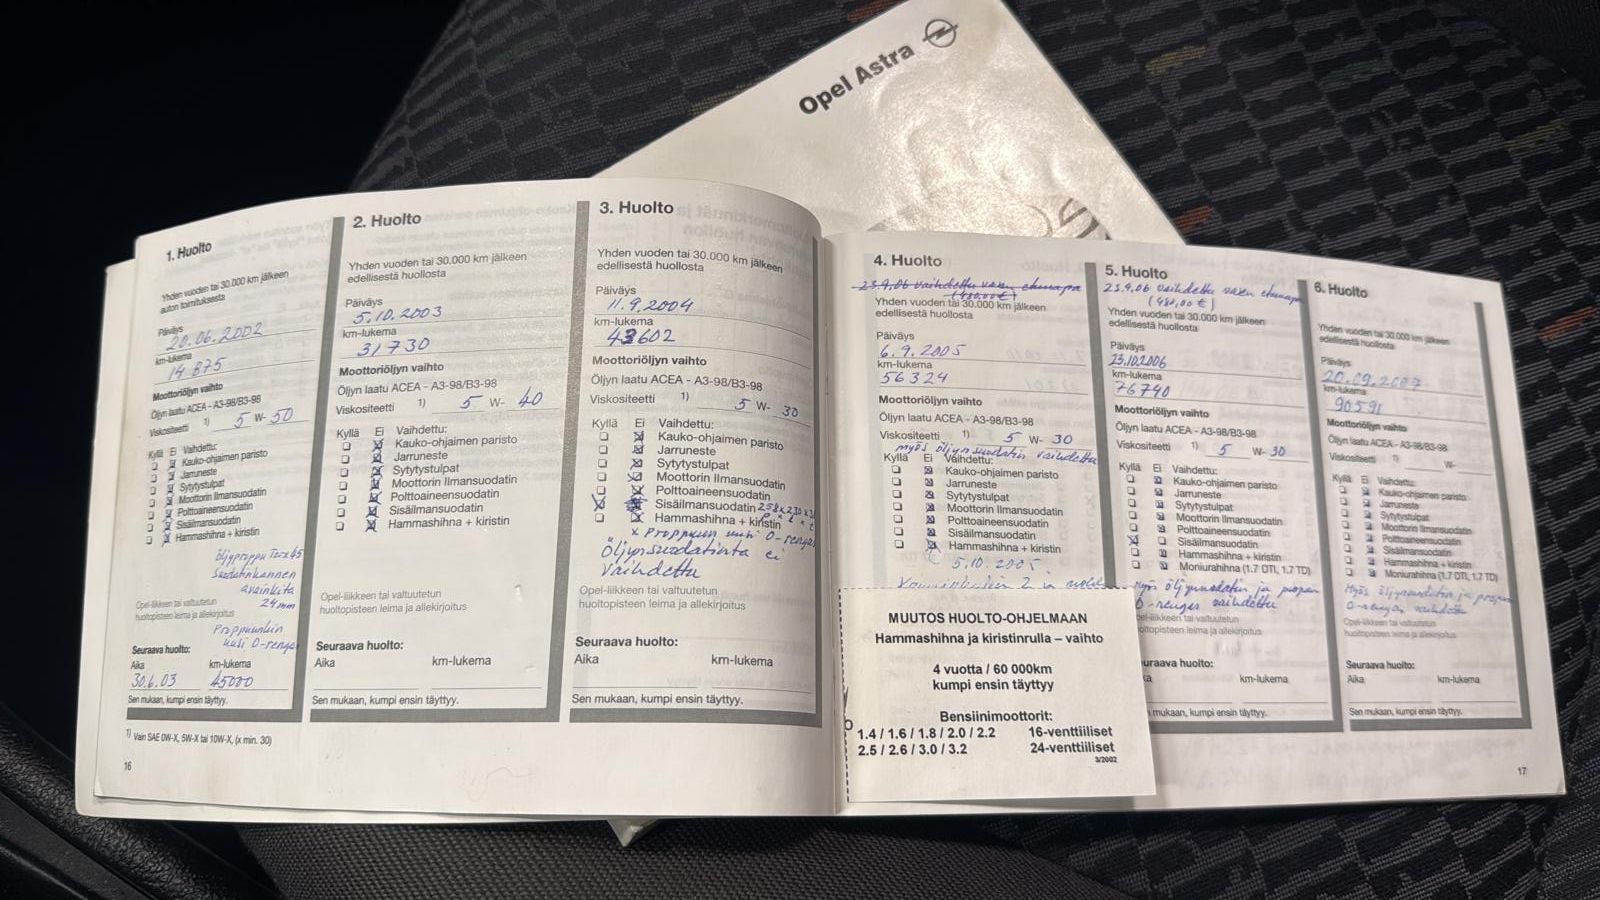 Opel Astra
1. Huolto
Yhden vuoden tai 30.000 km jälkeen
auton toimituksesta
Päiväys
20.06.2002
km-lukema
14 875
Moottoriöljyn vaihto
Öljyn laatu ACEA - A3-98/B3-98
Viskositeetti 1) 5 W- 50
Kyllä Ei Vaihdettu:
Kauko-ohjaimen paristo
Jarruneste
Sytytystulpat
Moottorin Ilmansuodatin
Polttoaineensuodatin
Sisäilmansuodatin
Hammashihna + kiristin
öljyproppu Torx 45
Suodatinkannen
avainkita
24 mm
Opel-liikkeen tai valtuutetun
huoltopisteen leima ja allekirjoitus
Proppuunkin
uusi O-rengas
Seuraava huolto:
Aika km-lukema
30.6.03 45000
Sen mukaan, kumpi ensin täyttyy.
1) Vain SAE 0W-X, 5W-X tai 10W-X, (x min. 30)
16
2. Huolto
Yhden vuoden tai 30.000 km jälkeen
edellisestä huollosta
Päiväys
5.10.2003
km-lukema
31730
Moottoriöljyn vaihto
Öljyn laatu ACEA - A3-98/B3-98
Viskositeetti 1) 5 W- 40
Kyllä Ei Vaihdettu:
Kauko-ohjaimen paristo
Jarruneste
Sytytystulpat
Moottorin Ilmansuodatin
Polttoaineensuodatin
Sisäilmansuodatin
Hammashihna + kiristin
Opel-liikkeen tai valtuutetun
huoltopisteen leima ja allekirjoitus
Seuraava huolto:
Aika km-lukema
Sen mukaan, kumpi ensin täyttyy.
3. Huolto
Yhden vuoden tai 30.000 km jälkeen
edellisestä huollosta
Päiväys
11.9.2004
km-lukema
43602
Moottoriöljyn vaihto
Öljyn laatu ACEA - A3-98/B3-98
Viskositeetti 1) 5 W- 30
Kyllä Ei Vaihdettu:
Kauko-ohjaimen paristo
Jarruneste
Sytytystulpat
Moottorin Ilmansuodatin
Polttoaineensuodatin
Sisäilmansuodatin
Hammashihna + kiristin
x Proppuun uusi O-rengas
Öljynsuodatinta ei
vaihdettu
Opel-liikkeen tai valtuutetun
huoltopisteen leima ja allekirjoitus
Seuraava huolto:
Aika km-lukema
Sen mukaan, kumpi ensin täyttyy.
4. Huolto
23.9.06 vaihdettu vasen etunapa
(480,00€)
Yhden vuoden tai 30.000 km jälkeen
edellisestä huollosta
Päiväys
6.9.2005
km-lukema
56324
Moottoriöljyn vaihto
Öljyn laatu ACEA - A3-98/B3-98
Viskositeetti 1) 5 W- 30
myös öljynsuodatin vaihdettu
Kyllä Ei Vaihdettu:
Kauko-ohjaimen paristo
Jarruneste
Sytytystulpat
Moottorin Ilmansuodatin
Polttoaineensuodatin
Sisäilmansuodatin
Hammashihna + kiristin
5.10.2005.
MUUTOS HUOLTO-OHJELMAAN
Hammashihna ja kiristinrulla – vaihto
4 vuotta / 60 000km
kumpi ensin täyttyy
Bensiinimoottorit:
1.4 / 1.6 / 1.8 / 2.0 / 2.2 16-venttiiliset
2.5 / 2.6 / 3.0 / 3.2 24-venttiiliset
3/2002
5. Huolto
23.9.06 vaihdettu vasen etunapa
(480,00 €)
Yhden vuoden tai 30.000 km jälkeen
edellisestä huollosta
Päiväys
23.10.2006
km-lukema
76740
Moottoriöljyn vaihto
Öljyn laatu ACEA - A3-98/B3-98
Viskositeetti 1) 5 W- 30
Kyllä Ei Vaihdettu:
Kauko-ohjaimen paristo
Jarruneste
Sytytystulpat
Moottorin Ilmansuodatin
Polttoaineensuodatin
Sisäilmansuodatin
Hammashihna + kiristin
Moniurahihna (1.7 DTI, 1.7 TD)
Myös öljynsuodatin ja propun
O-rengas vaihdettu
huoltopisteen leima ja allekirjoitus
km-lukema
mukaan, kumpi ensin täyttyy.
6. Huolto
Yhden vuoden tai 30.000 km jälkeen
edellisestä huollosta
Päiväys
20.09.2007
km-lukema
90591
Moottoriöljyn vaihto
Öljyn laatu ACEA - A3-98/B3-98
Viskositeetti 1) W-
Kyllä Ei Vaihdettu:
Kauko-ohjaimen paristo
Jarruneste
Sytytystulpat
Moottorin Ilmansuodatin
Polttoaineensuodatin
Sisäilmansuodatin
Hammashihna + kiristin
Moniurahihna (1.7 DTI, 1.7 TD)
Myös öljynsuodatin ja propun
O-rengas vaihdettu
Opel-liikkeen tai valtuutetun
huoltopisteen leima ja allekirjoitus
Seuraava huolto:
Aika km-lukema
Sen mukaan, kumpi ensin täyttyy.
17